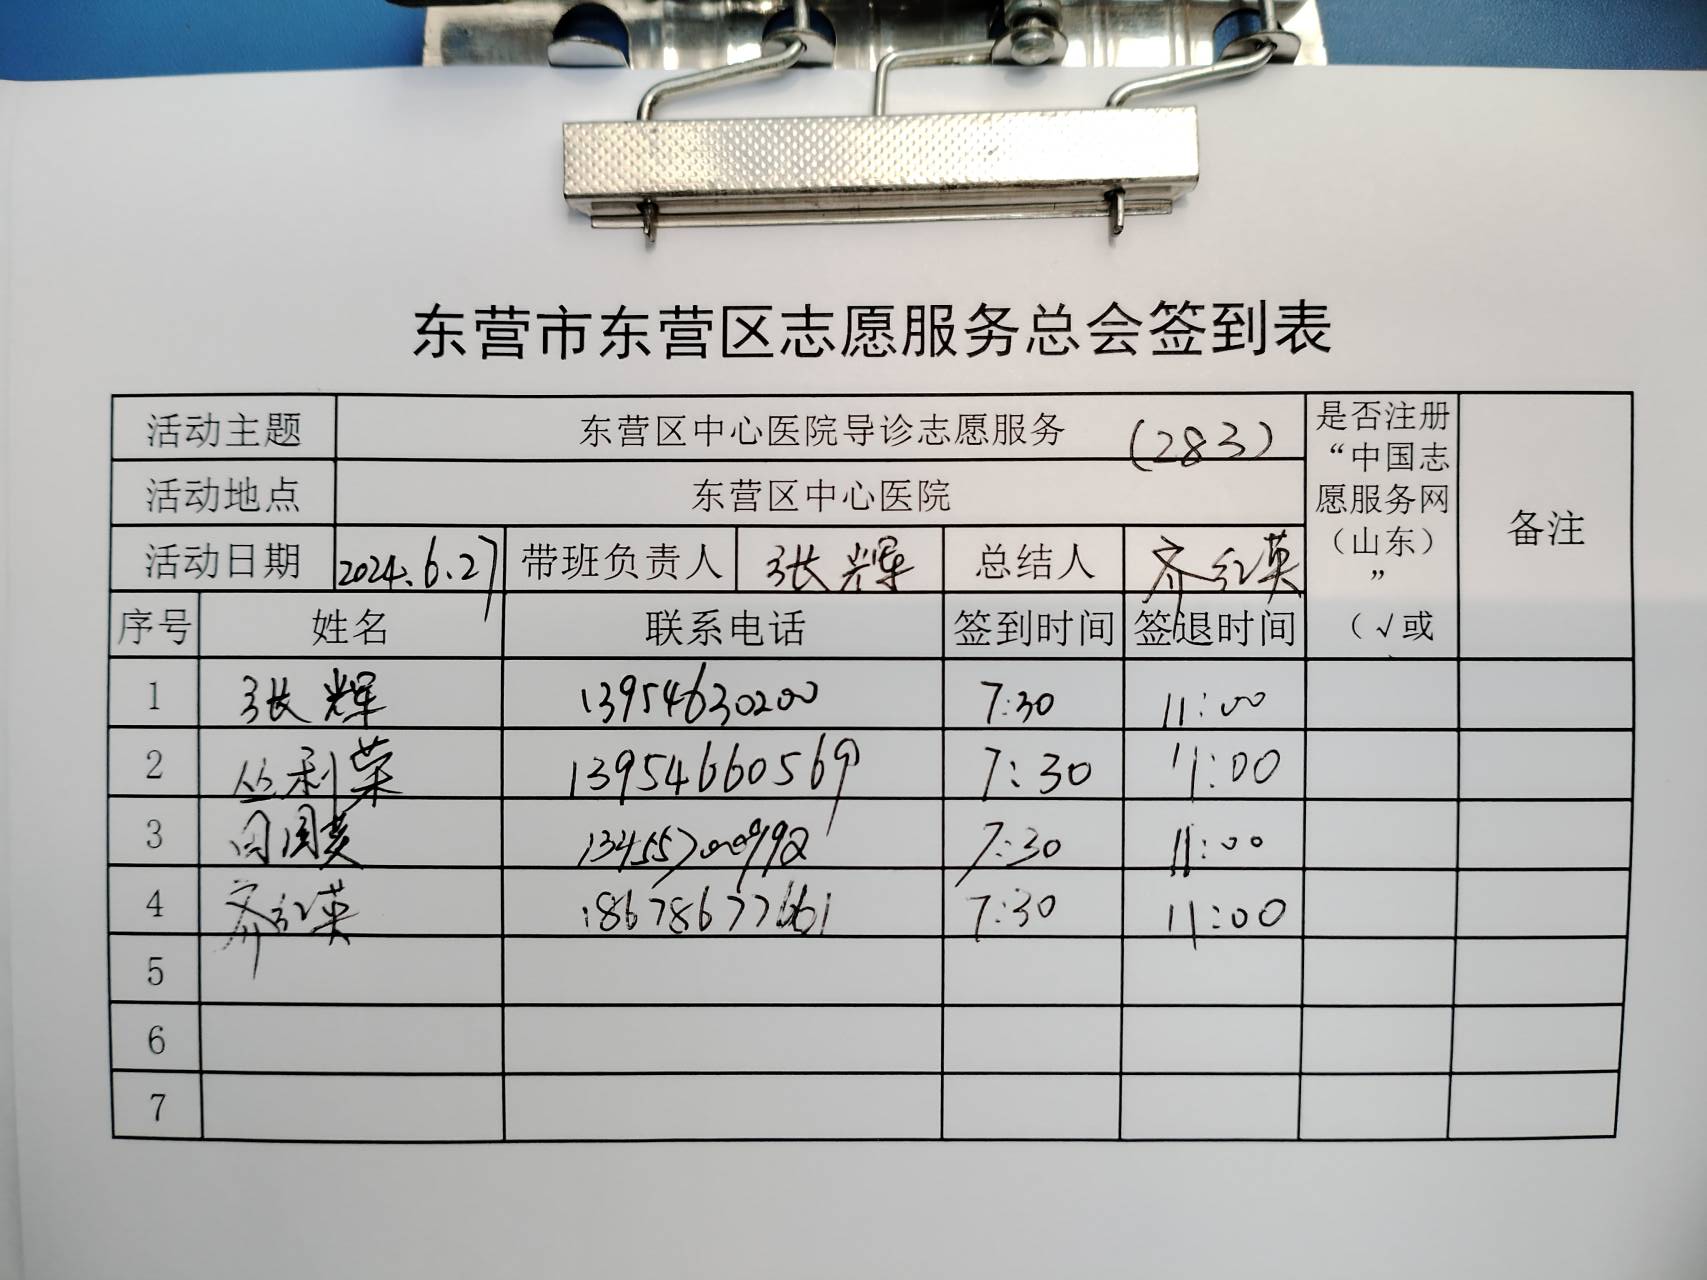 东营市东营区志愿服务总会签到表
活动主题 东营区中心医院导诊志愿服务 (283) 是否注册“中国志愿服务网（山东）”（√或 备注
活动地点 东营区中心医院
活动日期 2024.6.27 带班负责人 张辉 总结人 齐红英
序号 姓名 联系电话 签到时间 签退时间
1 张辉 13954630200 7:30 11:00
2 丛利荣 13954660569 7:30 11:00
3 13455700992 7:30 11:00
4 齐红英 18678677661 7:30 11:00
5
6
7